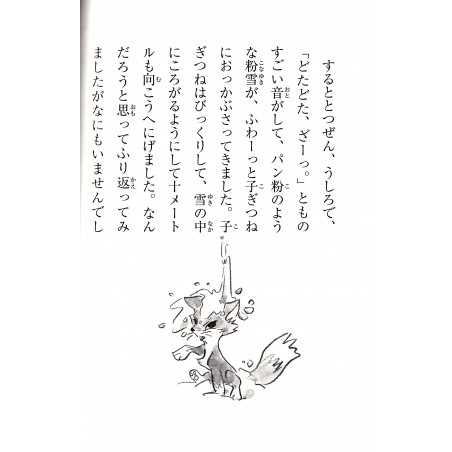 するととつぜん、うしろで、
「どたどた、ざーっ。」ともの
すごい音がして、パン粉のよう
な粉雪が、ふわーっと子ぎつね
におっかぶさってきました。子
ぎつねはびっくりして、雪の中
にころがるようにして十メート
ルも向こうへにげました。なん
だろうと思ってふり返ってみ
ましたがなにもいませんでし